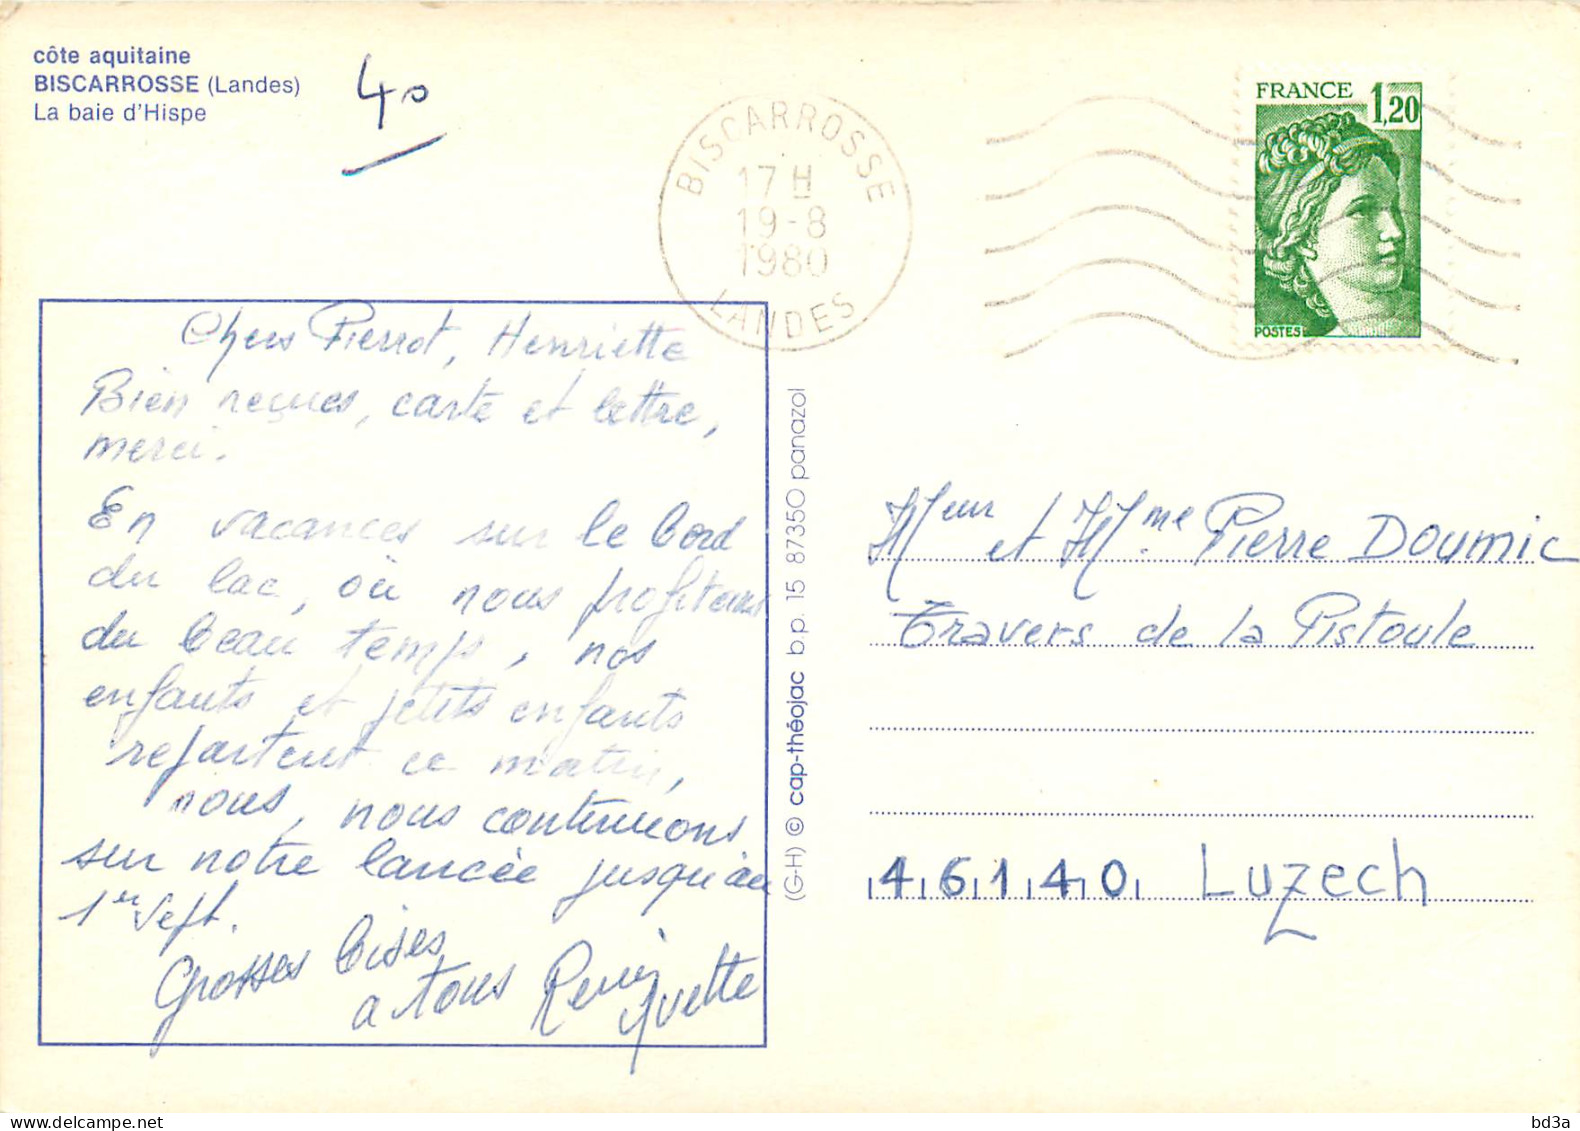 côte aquitaine
BISCARROSSE (Landes)
La baie d'Hispe
40
BISCARROSSE
17 H
19-8
1980
LANDES
FRANCE 1,20
POSTES
Chers Pierrot, Henriette
Bien reçues, carte et lettre,
merci.
En vacances sur le bord
du lac, où nous profitons
du beau temps, nos
enfants et petits enfants
repartent ce matin,
nous, nous continuons
sur notre lancée jusqu'au
1er Sept.
Grosses bises
a tous René
Yvette
(G-H) © cap-théojac b.p. 15 87350 panazol
Meur et Mme Pierre Doumic
Travers de la Pistoule
46140 Luzech
bd3a